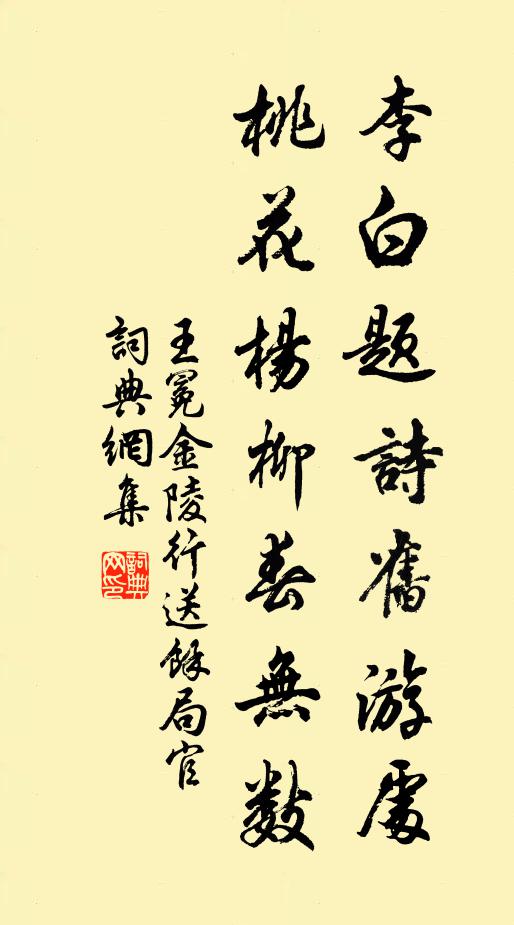 李白題詩舊游處
桃花楊柳春無數
王冕金陵行送餘局官
詞典網集
詞典网印